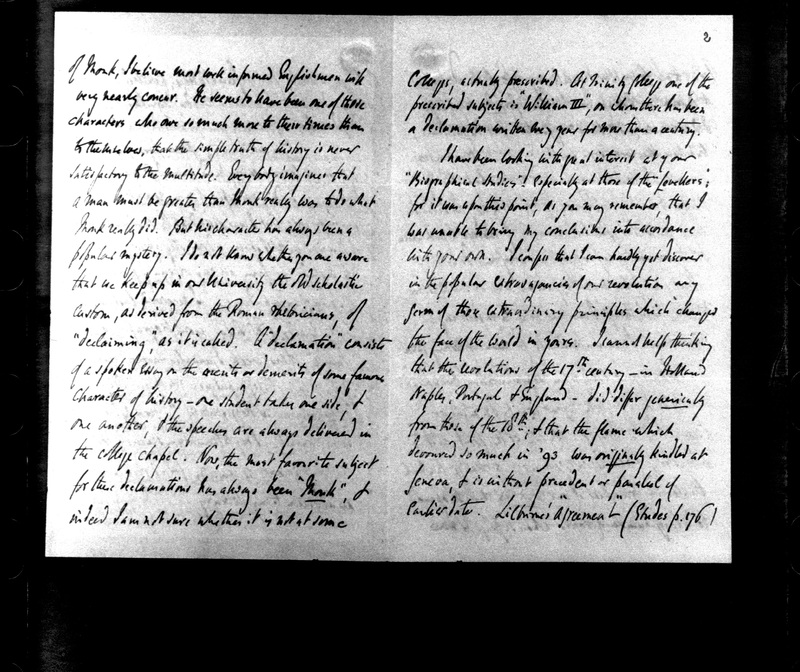 of Monk, I believe most well informed Englishmen will
very nearly concur. He seems to have been one of those
characters who owe so much more to their times than
to themselves, that the simple truth of history is never
satisfactory to the multitude. Everybody imagines that
a man must be greater than Monk really was to do what
Monk really did. But his character has always been a
popular mystery. I do not know whether you are aware
that we keep up in our University the old scholastic
custom, as derived from the Roman rhetoricians, of
"declaiming", as it is called. A "declamation" consists
of a spoken essay on the merits or demerits of some famous
character of history – one student takes one side, &
one another, & the speeches are always delivered in
the college chapel. Now, the most favourite subject
for these declamations has always been "Monk", &
indeed I am not sure whether it is not at some
2
Colleges, actually prescribed. At Trinity College one of the
prescribed subjects is "William III", on whom there has been
a declamation written every year for more than a century.
I have been looking with great interest at your
"Biographical Studies": especially at those of the "Levellers";
for it was upon this point, as you may remember that I
was unable to bring my conclusions into accordance
with your own. I confess that I can hardly yet discover
in the popular extravagancies of our revolution any
germ of those extraordinary principles which changed
the face of the world in yours. I cannot help thinking
that the revolutions of the 17th century – in Holland
Naples, Portugal & England – did differ generically
from those of the 18th; & that the flame which
devoured so much in '93 was originally kindled at
Geneva & is without precedent or parallel of
earlier date. Lilburne's "Agreement" (Etudes p. 176)